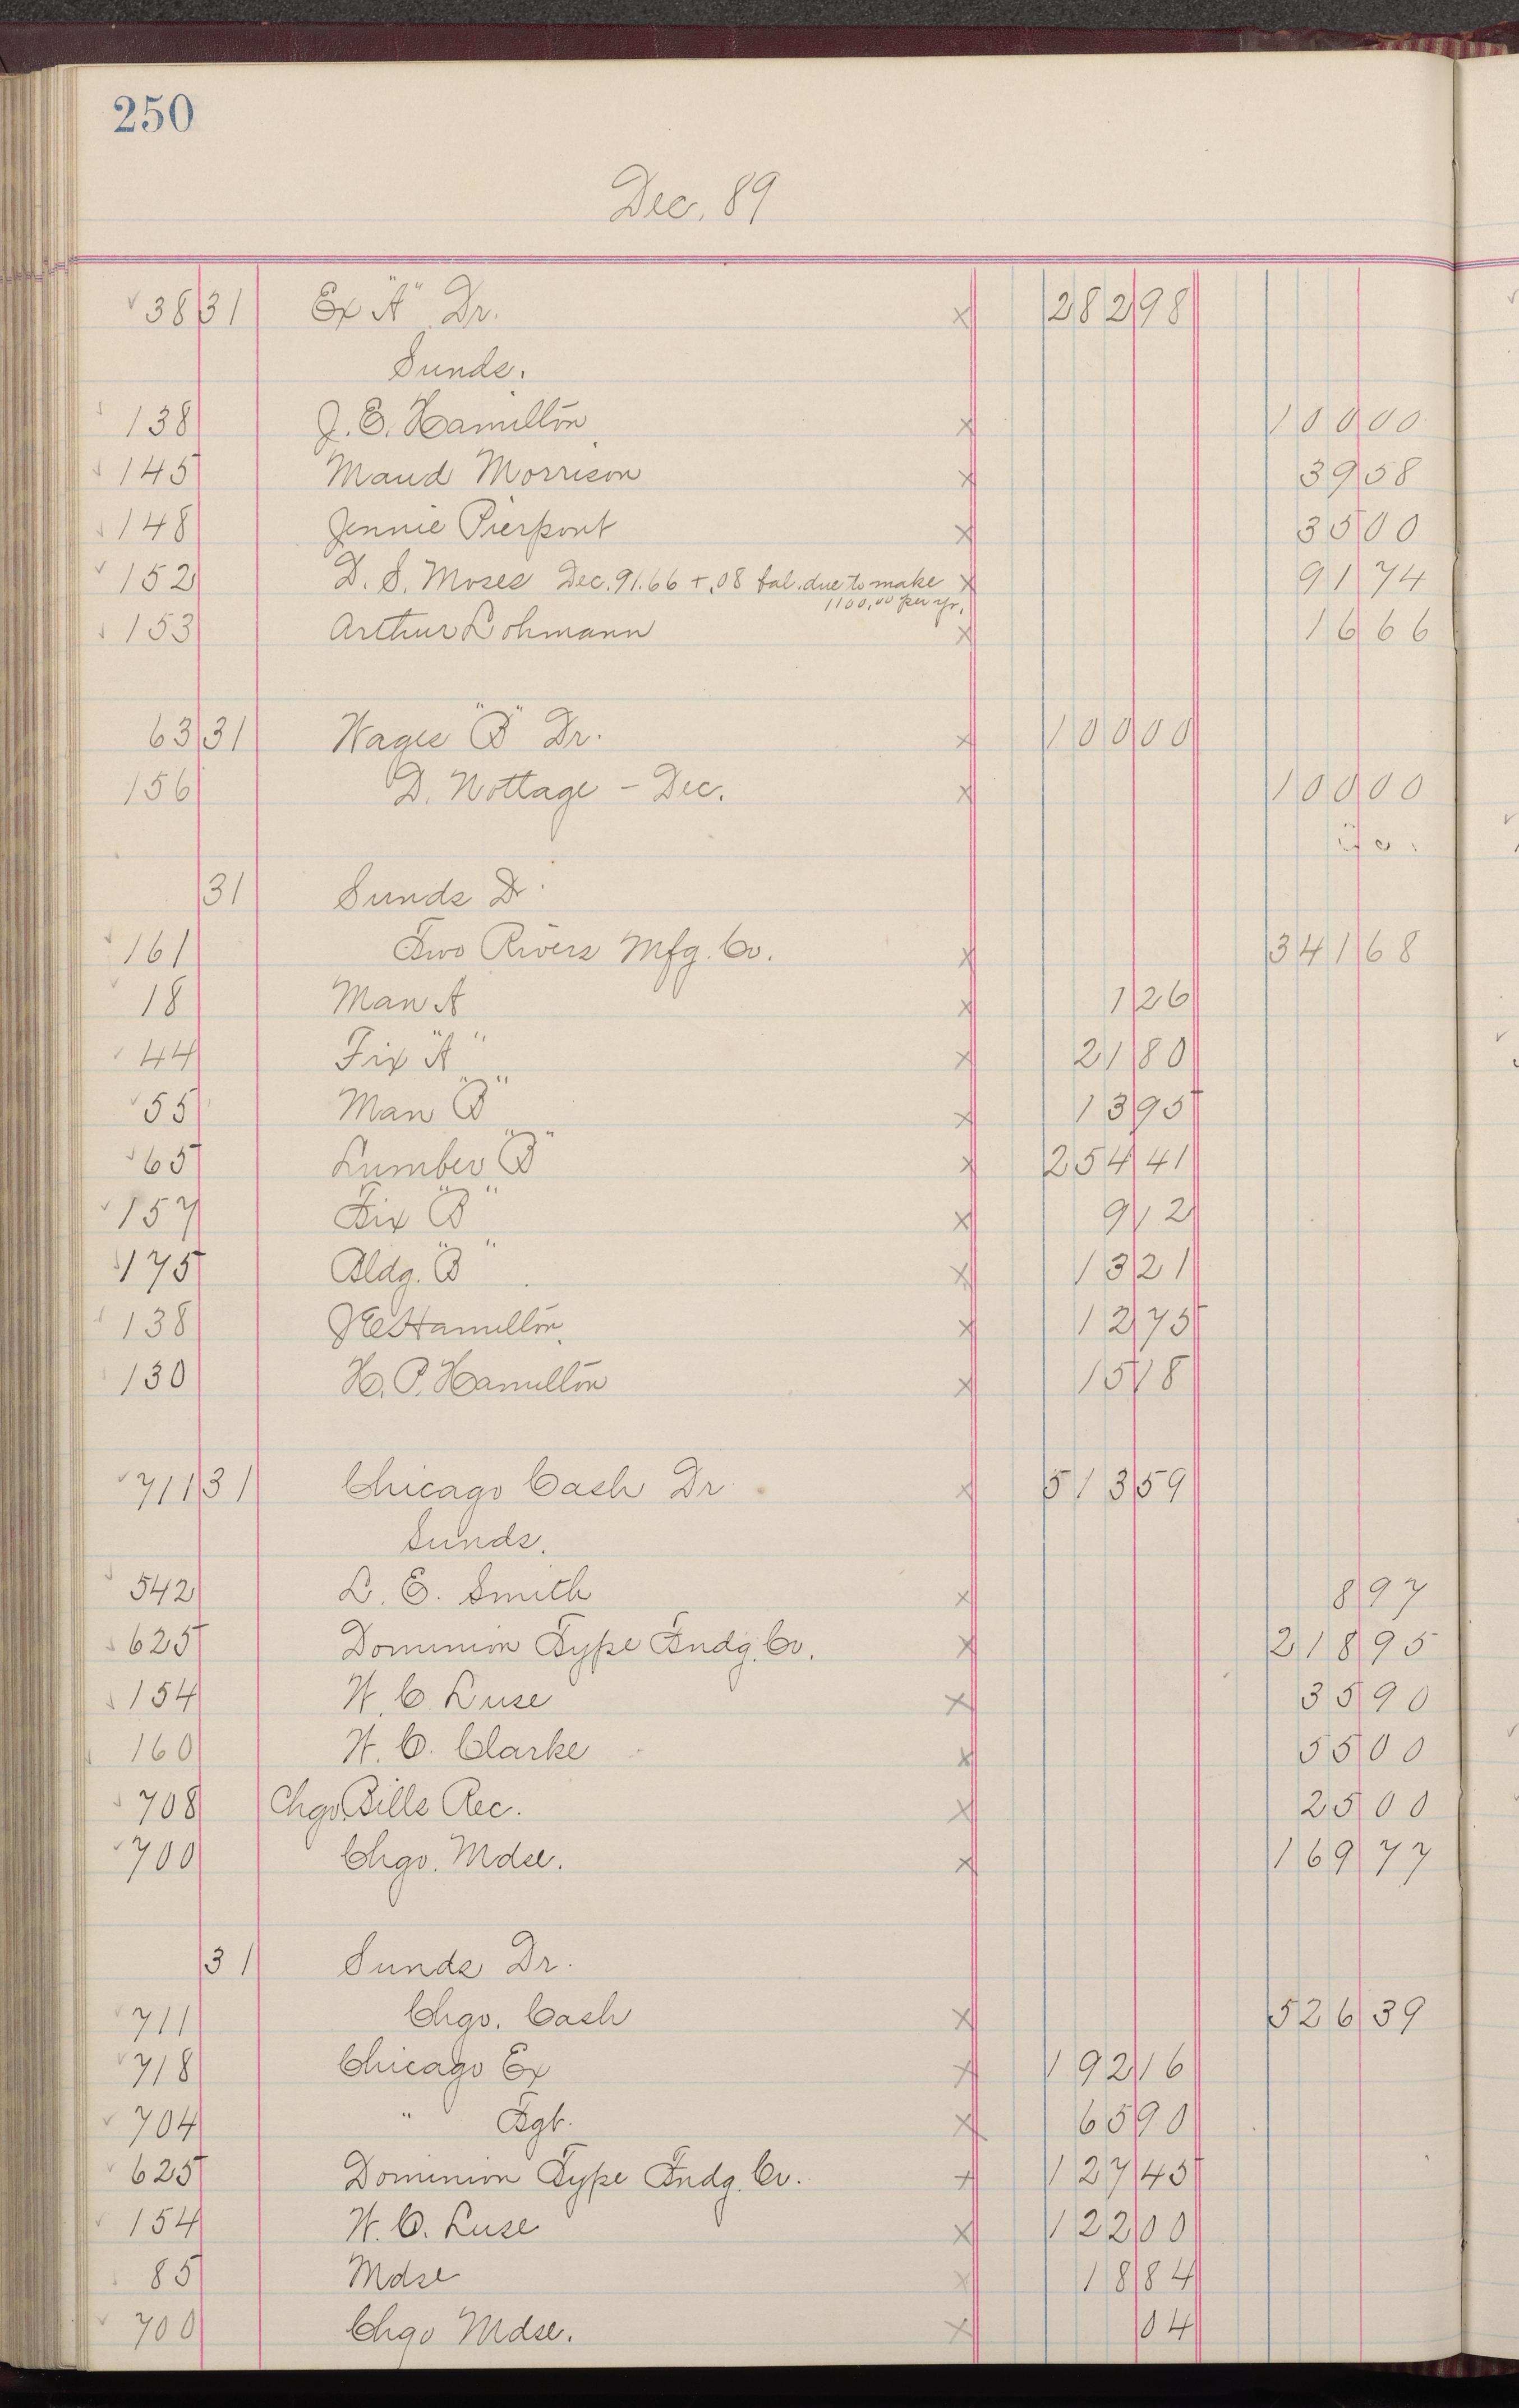 250
Dec. 89
38 31 Ex "A" Dr. x 282 98
Sunds.
138 J. E. Hamilton x 100 00
145 Maud Morrison x 39 58
148 Jennie Pierpont x 35 00
152 D. S. Moses Dec. 91.66 + .08 bal. due to make x 91 74
1100.00 per yr.
153 Arthur Lohmann x 16 66
63 31 Wages "B" Dr. x 100 00
156 D. Nottage - Dec. x 100 00
31 Sunds Dr
161 Two Rivers Mfg. Co. x 341 68
18 Man A x 1 26
44 Fix "A" x 21 80
55 Man "B" x 13 95
65 Lumber "B" x 254 41
157 Fix "B" x 9 12
175 Bldg. "B" x 13 21
138 J E Hamilton. x 12 75
130 H. P. Hamilton x 15 18
711 31 Chicago Cash Dr x 513 59
Sunds.
542 L. E. Smith x 8 97
625 Dominion Type Fndg. Co. x 218 95
154 W. C. Luse x 35 90
160 W. C. Clarke x 55 00
708 Chgo Bills Rec. x 25 00
700 Chgo. Mdse. x 169 77
31 Sunds Dr.
711 Chgo. Cash x 526 39
718 Chicago Ex x 192 16
704 " Fgt. x 65 90
625 Dominion Type Fndg. Co. x 127 45
154 W. C. Luse x 122 00
85 Mdse x 18 84
700 Chgo Mdse. x 04